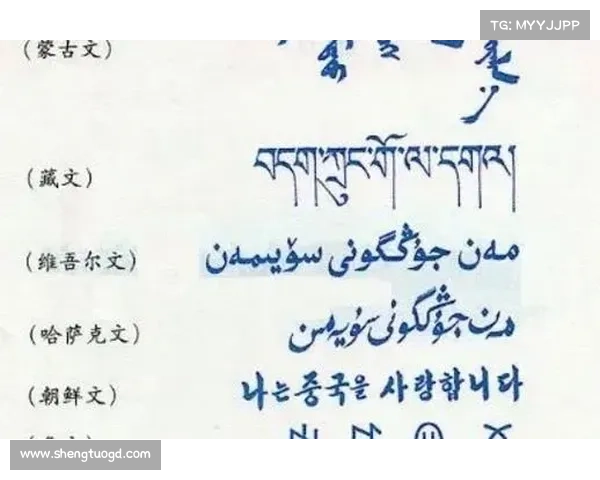 TG: MYYJJPP
(蒙古文)
(藏文) བདག་ཀྲུང་གོ་ལ་དགའ།
(维吾尔文) مەن جۇڭگونى سۆيىمەن
(哈萨克文) مەن جۇڭگونى سۇيەمىن
(朝鲜文) 나는 중국을 사랑합니다
www.shengtuogd.com